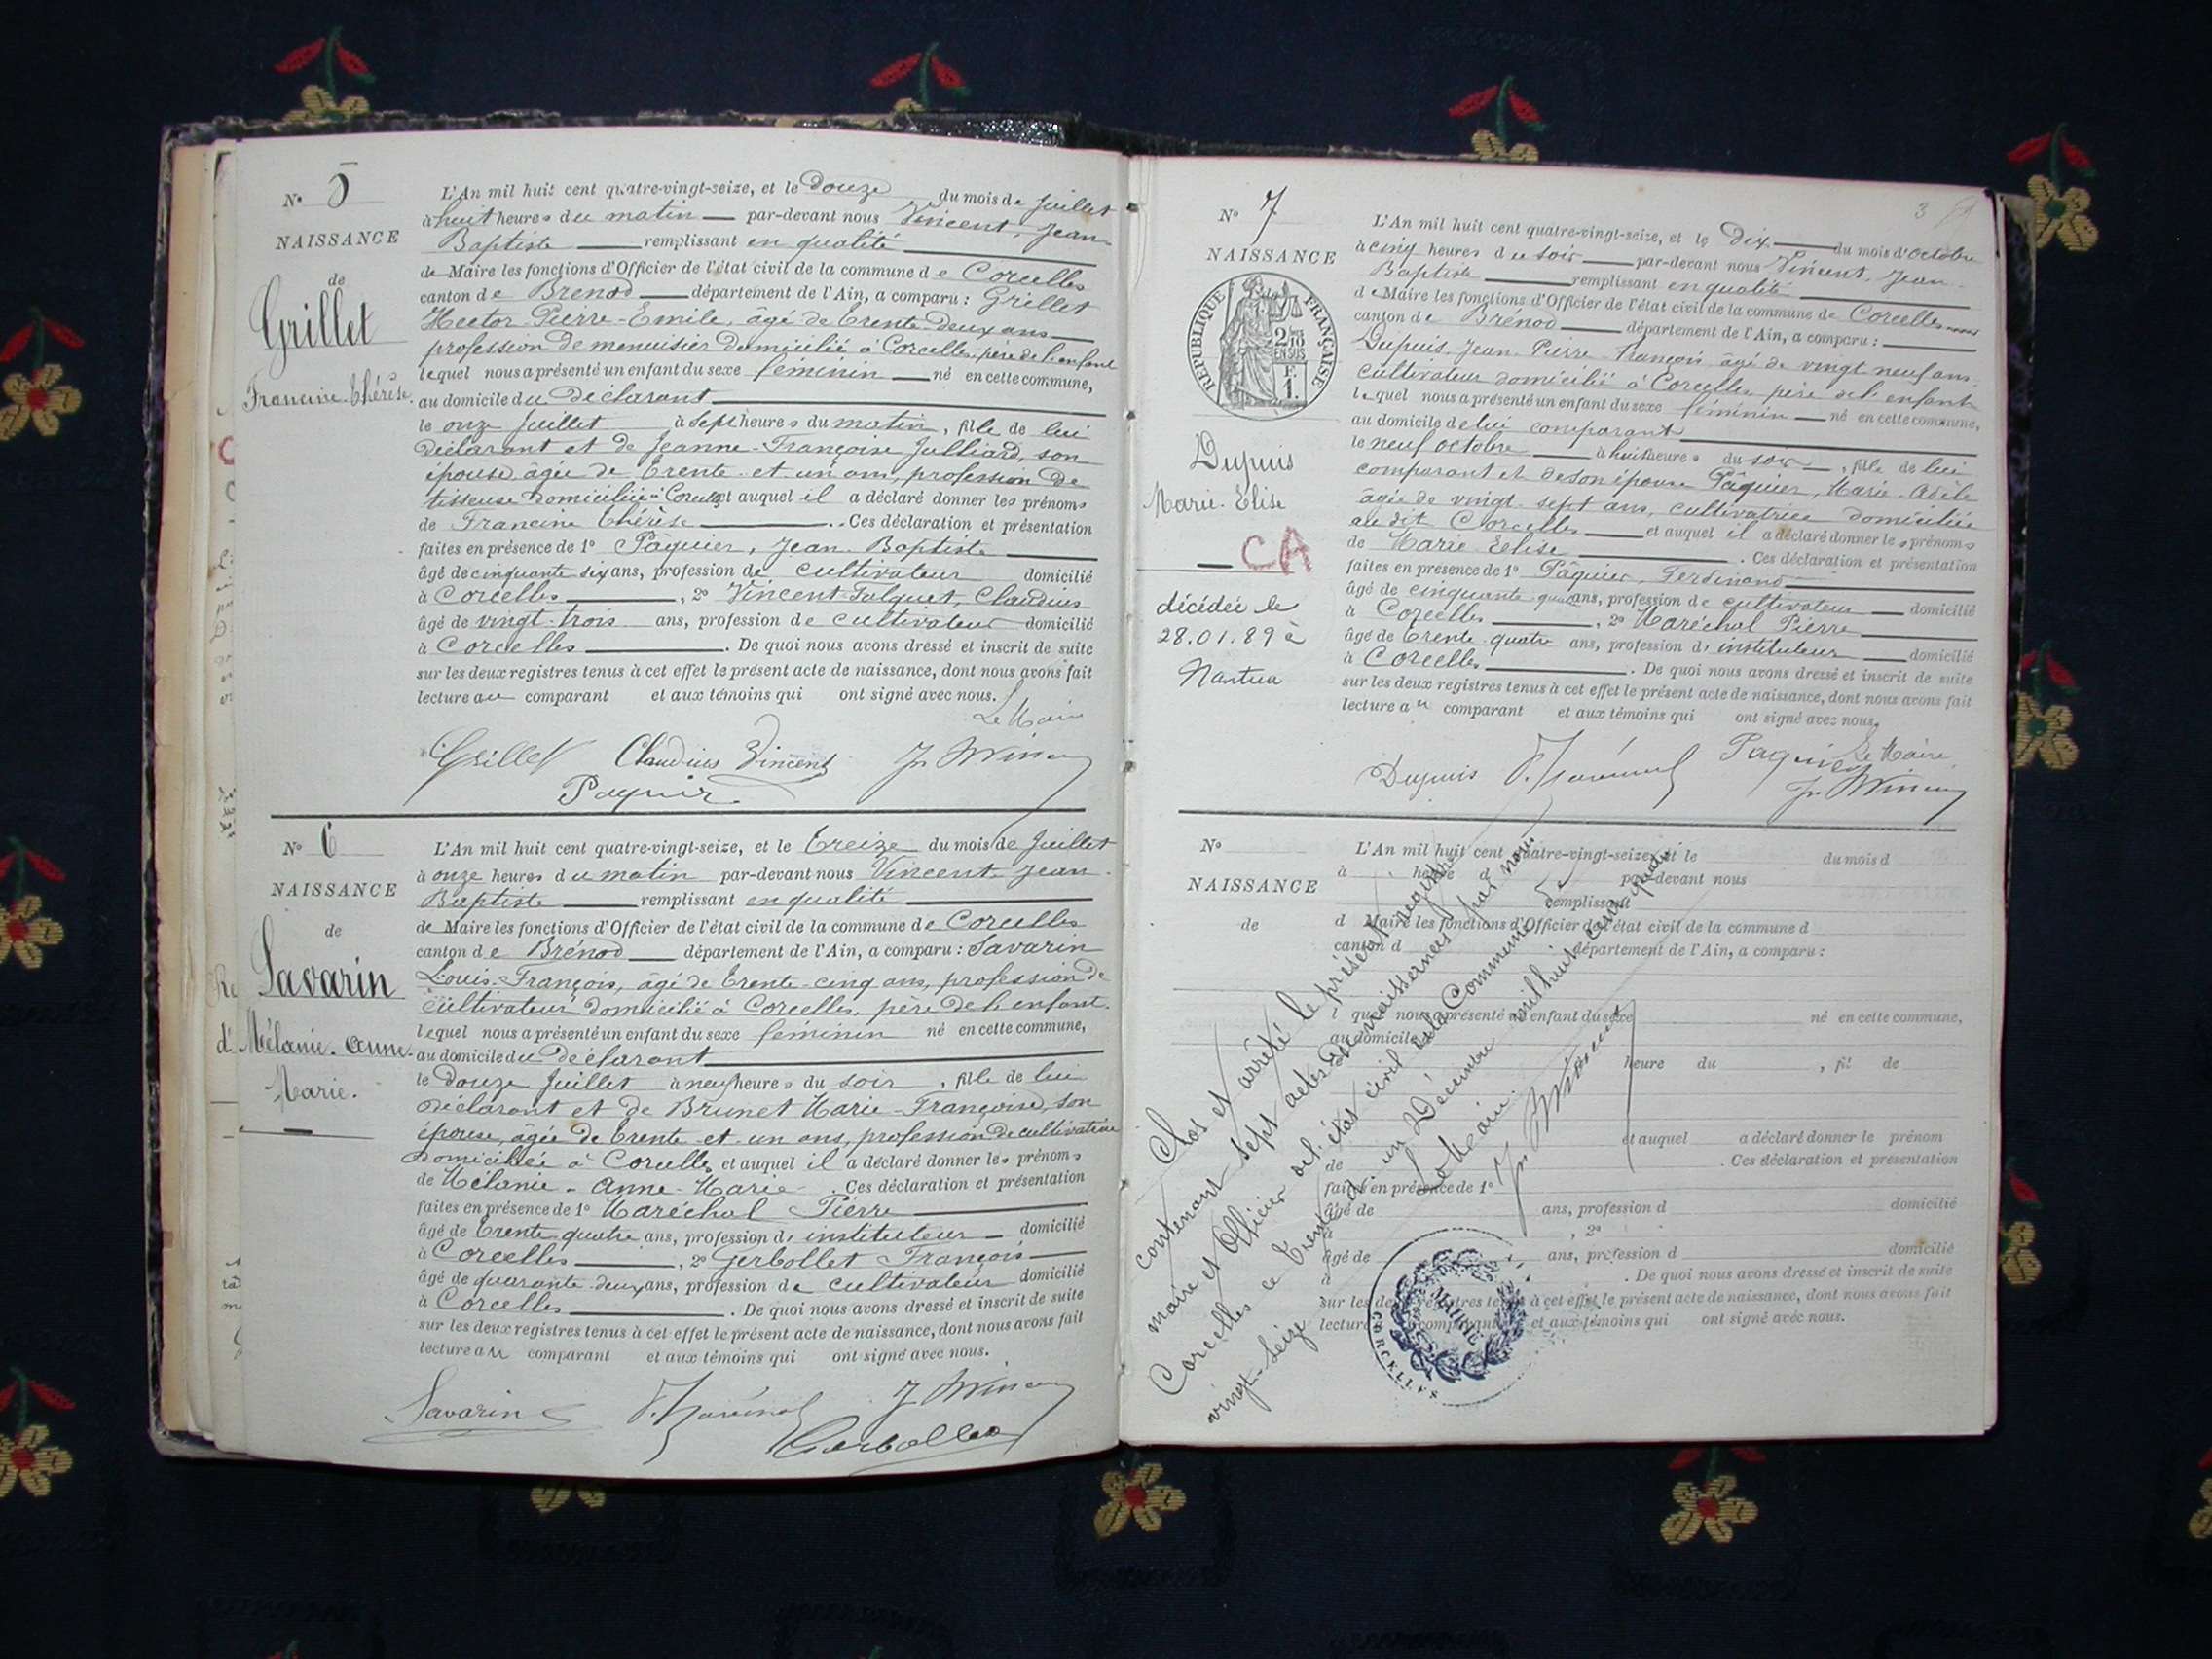 Nº 5
NAISSANCE
de
Grillet
Francine-Thérèse.
L'An mil huit cent quatre-vingt-seize, et le douze du mois de Juillet
à huit heures du matin — par-devant nous Vincent, Jean-
Baptiste — remplissant en qualité
de Maire les fonctions d'Officier de l'état civil de la commune de Corcelles
canton de Brenod — département de l'Ain, a comparu : Grillet
Hector-Pierre-Emile, âgé de trente-deux ans
profession de menuisier domicilié à Corcelles, père de l'enfant
lequel nous a présenté un enfant du sexe féminin — né en cette commune,
au domicile du déclarant
le onze Juillet à sept heures du matin, fille de lui
déclarant et de Jeanne-Françoise Julliard, son
épouse âgée de trente-et-un ans, profession de
tisseuse domiciliée à Corcelles et auquel il a déclaré donner les prénoms
de Francine Thérèse — . Ces déclaration et présentation
faites en présence de 1º Pâquier, Jean-Baptiste
âgé de cinquante six ans, profession de cultivateur domicilié
à Corcelles —, 2º Vincent-Falquet, Claudius
âgé de vingt-trois ans, profession de cultivateur domicilié
à Corcelles — . De quoi nous avons dressé et inscrit de suite
sur les deux registres tenus à cet effet le présent acte de naissance, dont nous avons fait
lecture au comparant et aux témoins qui ont signé avec nous.
Le Maire
Grillet Claudius Vincent Jn Vincent
Paquier
Nº 6
NAISSANCE
de
Savarin
Mélanie-Anne-
Marie.
L'An mil huit cent quatre-vingt-seize, et le treize du mois de Juillet
à onze heures du matin par-devant nous Vincent-Jean-
Baptiste — remplissant en qualité
de Maire les fonctions d'Officier de l'état civil de la commune de Corcelles
canton de Brénod — département de l'Ain, a comparu : Savarin
Louis-François, âgé de trente-cinq ans, profession de
cultivateur domicilié à Corcelles, père de l'enfant.
lequel nous a présenté un enfant du sexe féminin né en cette commune,
au domicile du déclarant
le douze Juillet à neuf heures du soir, fille de lui
déclarant et de Brunet Marie-Françoise, son
épouse, âgée de trente-et-un ans, profession de cultivatrice
domiciliée à Corcelles et auquel il a déclaré donner les prénoms
de Mélanie-Anne-Marie — . Ces déclaration et présentation
faites en présence de 1º Maréchal Pierre
âgé de trente quatre ans, profession d'instituteur — domicilié
à Corcelles —, 2º Gerbollet François
âgé de quarante-deux ans, profession de cultivateur domicilié
à Corcelles — . De quoi nous avons dressé et inscrit de suite
sur les deux registres tenus à cet effet le présent acte de naissance, dont nous avons fait
lecture au comparant et aux témoins qui ont signé avec nous.
Savarin P. Maréchal J Vincent
Gerbollet
3
Nº 7
NAISSANCE
RÉPUBLIQUE FRANÇAISE
2/10
EN SUS
F.
1.
Dupuis
Marie-Elise
CA
décédée le
28.01.89 à
Nantua
L'An mil huit cent quatre-vingt-seize, et le Dix — du mois d'octobre
à cinq heures du soir — par-devant nous Vincent, Jean-
Baptiste — remplissant en qualité
de Maire les fonctions d'Officier de l'état civil de la commune de Corcelles
canton de Brénod — département de l'Ain, a comparu :
Dupuis, Jean-Pierre-François âgé de vingt neuf ans
cultivateur domicilié à Corcelles père de l'enfant
lequel nous a présenté un enfant du sexe féminin — né en cette commune,
au domicile de lui comparant
le neuf octobre — à huit heures du soir —, fille de lui
comparant et de son épouse Pâquier, Marie-Adèle
âgée de vingt-sept ans, cultivatrice domiciliée
au dit Corcelles — et auquel il a déclaré donner les prénoms
de Marie-Elise — . Ces déclaration et présentation
faites en présence de 1º Pâquier, Ferdinand
âgé de cinquante-quatre ans, profession de cultivateur — domicilié
à Corcelles —, 2º Maréchal Pierre
âgé de trente-quatre ans, profession d'instituteur — domicilié
à Corcelles — . De quoi nous avons dressé et inscrit de suite
sur les deux registres tenus à cet effet le présent acte de naissance, dont nous avons fait
lecture au comparant et aux témoins qui ont signé avec nous.
Dupuis P. Maréchal Paquier Le Maire
Jn Vincent
Nº
NAISSANCE
de
L'An mil huit cent quatre-vingt-seize, et le du mois d
à heure d par-devant nous
remplissant
d Maire les fonctions d'Officier de l'état civil de la commune d
canton d département de l'Ain, a comparu :
l quel nous a présenté un enfant du sexe né en cette commune,
au domicile
heure du , fil de
et auquel a déclaré donner le prénom
de . Ces déclaration et présentation
faites en présence de 1º
âgé de ans, profession d domicilié
à , 2º
âgé de ans, profession d domicilié
à . De quoi nous avons dressé et inscrit de suite
sur les deux registres tenus à cet effet le présent acte de naissance, dont nous avons fait
lecture comparant et aux témoins qui ont signé avec nous.
Clos et arrêté le présent registre
contenant sept actes de naissances par nous
maire et Officier de l'état civil de la Commune de
Corcelles ce trente et un Décembre mil huit cent quatre
vingt-seize
Le Maire.
Jn Vincent
MAIRIE
CORCELLES